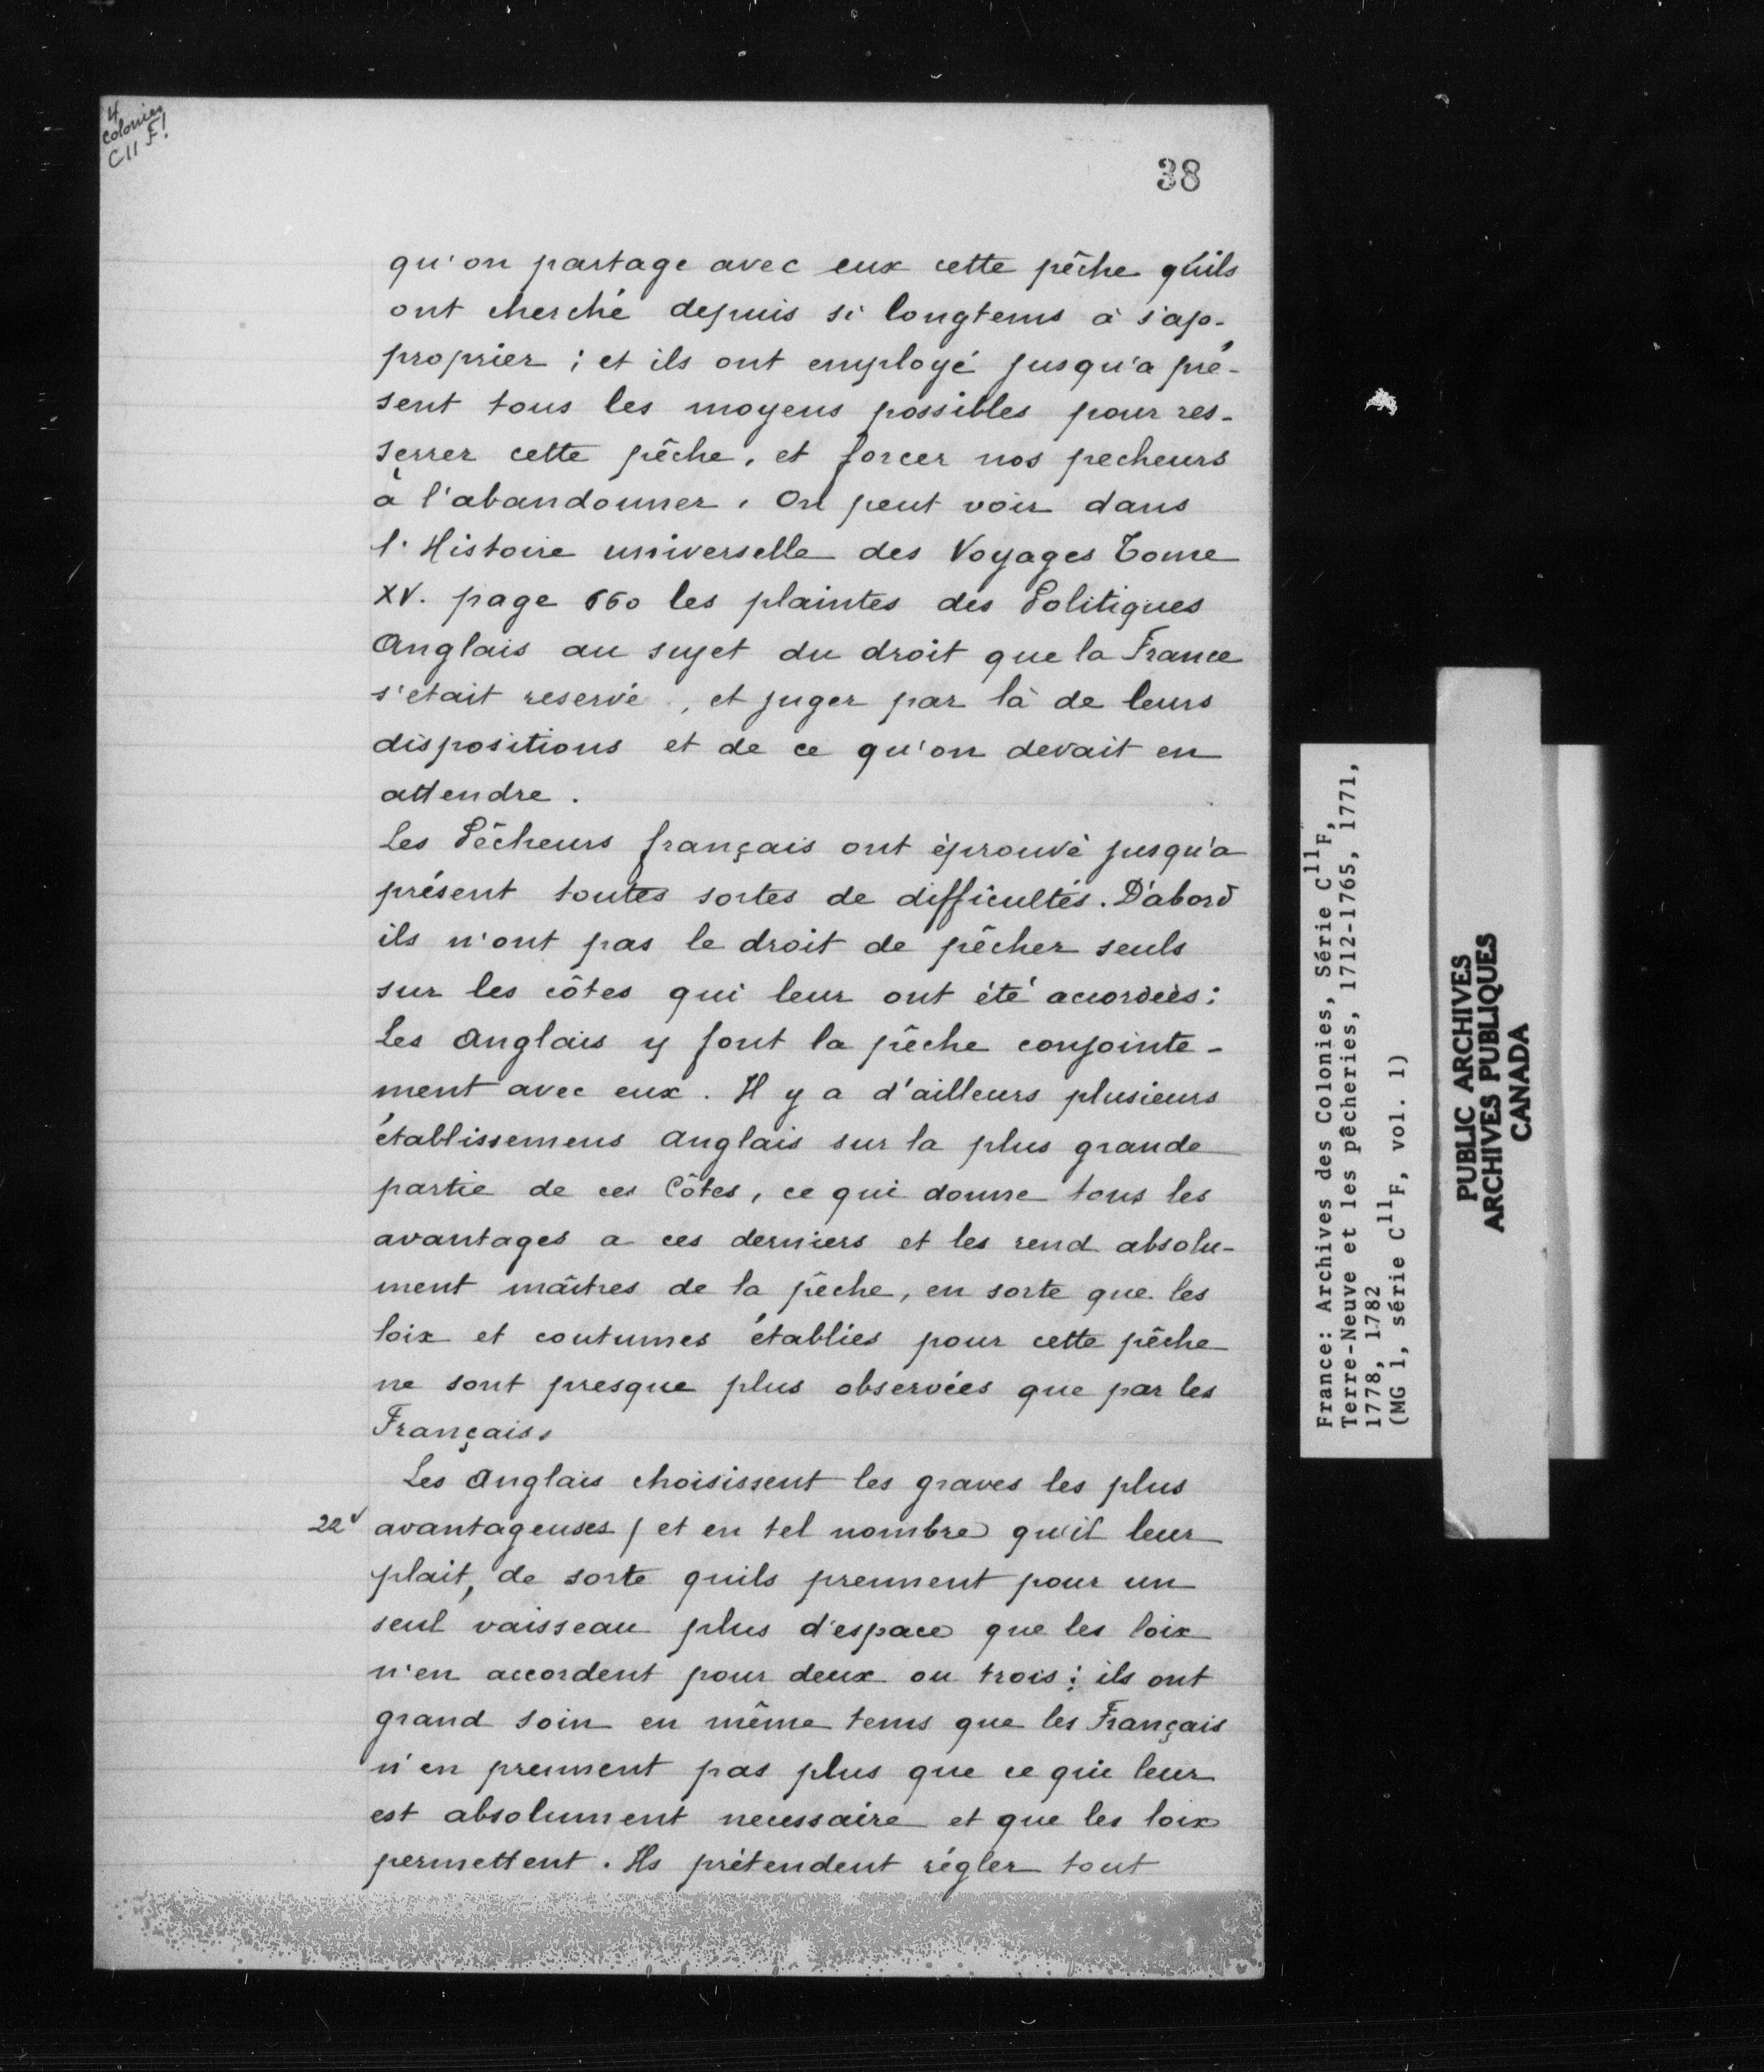 4
colonies
C11 F1
38
qu'on partage avec eux cette pêche qu'ils
ont cherché depuis si longtems à s'ap-
proprier ; et ils ont employé jusqu'a pré-
sent tous les moyens possibles pour res-
serrer cette pêche, et forcer nos pecheurs
à l'abandonner. On peut voir dans
l'Histoire universelle des Voyages Tome
XV. page 660 les plaintes des Politiques
Anglais au sujet du droit que la France
s'était reservé, et juger par là de leurs
dispositions et de ce qu'on devait en
attendre.
Les Pêcheurs français ont éprouvé jusqu'a
présent toutes sortes de difficultés. D'abord
ils n'ont pas le droit de pêcher seuls
sur les côtes qui leur ont été accordées :
Les Anglais y font la pêche conjointe-
ment avec eux. Il y a d'ailleurs plusieurs
établissemens Anglais sur la plus grande
partie de ces Côtes, ce qui donne tous les
avantages a ces derniers et les rend absolu-
ment maîtres de la pêche, en sorte que les
loix et coutumes établies pour cette pêche
ne sont presque plus observées que par les
Français.
Les Anglais choisissent les graves les plus
22v avantageuses / et en tel nombre qu'il leur
plait, de sorte quils prennent pour un
seul vaisseau plus d'espace que les loix
n'en accordent pour deux ou trois : ils ont
grand soin en même tems que les Français
n'en prennent pas plus que ce qui leur
est absolument necessaire et que les loix
permettent. Ils prétendent régler tout
France: Archives des Colonies, Série C11F,
Terre-Neuve et les pêcheries, 1712-1765, 1771,
1778, 1782
(MG 1, série C11F, vol. 1)
PUBLIC ARCHIVES
ARCHIVES PUBLIQUES
CANADA